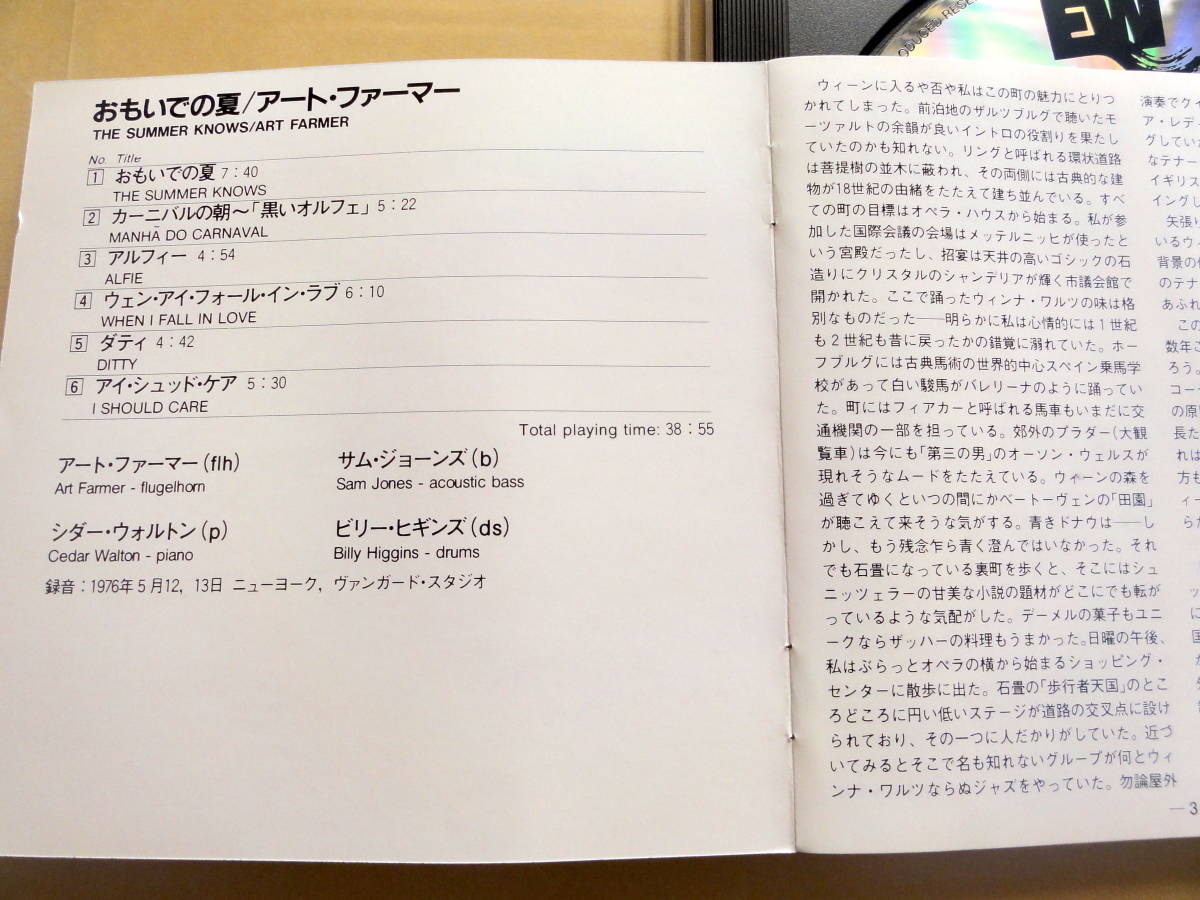 おもいでの夏/アート・ファーマー
THE SUMMER KNOWS/ART FARMER
No. Title
1 おもいでの夏 7:40
THE SUMMER KNOWS
2 カーニバルの朝〜「黒いオルフェ」 5:22
MANHÃ DO CARNAVAL
3 アルフィー 4:54
ALFIE
4 ウェン・アイ・フォール・イン・ラブ 6:10
WHEN I FALL IN LOVE
5 ダティ 4:42
DITTY
6 アイ・シュッド・ケア 5:30
I SHOULD CARE
Total playing time: 38:55
アート・ファーマー(flh)
Art Farmer - flugelhorn
サム・ジョーンズ(b)
Sam Jones - acoustic bass
シダー・ウォルトン(p)
Cedar Walton - piano
ビリー・ヒギンズ(ds)
Billy Higgins - drums
録音：1976年5月12, 13日 ニューヨーク, ヴァンガード・スタジオ
ウィーンに入るや否や私はこの町の魅力にとりつ
かれてしまった。前泊地のザルツブルグで聴いたモ
ーツァルトの余韻が良いイントロの役割りを果たし
ていたのかも知れない。リングと呼ばれる環状道路
は菩提樹の並木に蔽われ、その両側には古典的な建
物が18世紀の由緒をたたえて建ち並んでいる。すべ
ての町の目標はオペラ・ハウスから始まる。私が参
加した国際会議の会場はメッテルニッヒが使ったと
いう宮殿だったし、招宴は天井の高いゴシックの石
造りにクリスタルのシャンデリアが輝く市議会館で
開かれた。ここで踊ったウィンナ・ワルツの味は格
別なものだった——明らかに私は心情的には1世紀
も2世紀も昔に戻ったかの錯覚に溺れていた。ホー
フブルグには古典馬術の世界的中心スペイン乗馬学
校があって白い駿馬がバレリーナのように踊ってい
た。町にはフィアカーと呼ばれる馬車もいまだに交
通機関の一部を担っている。郊外のプラダー(大観
覧車)は今にも「第三の男」のオーソン・ウェルスが
現れそうなムードをたたえている。ウィーンの森を
過ぎてゆくといつの間にかベートーヴェンの「田園」
が聴こえて来そうな気がする。青きドナウは——し
かし、もう残念乍ら青く澄んではいなかった。それ
でも石畳になっている裏町を歩くと、そこにはシュ
ニッツェラーの甘美な小説の題材がどこにでも転が
っているような気配がした。デーメルの菓子もユニ
ークならザッハーの料理もうまかった。日曜の午後、
私はぶらっとオペラの横から始まるショッピング・
センターに散歩に出た。石畳の「歩行者天国」のとこ
ろどころに円い低いステージが道路の交叉点に設け
られており、その一つに人だかりがしていた。近づ
いてみるとそこで名も知れないグループが何とウィ
ンナ・ワルツならぬジャズをやっていた。勿論屋外
—3
演奏でクィ
ア・レディ
グしていた
なテナー
イギリス
イングし
矢張り
いるウィ
背景の
のテナー
あふれ
この
数年こ
ろう。
コー
の原
長た
れは
方も
ィー
らた